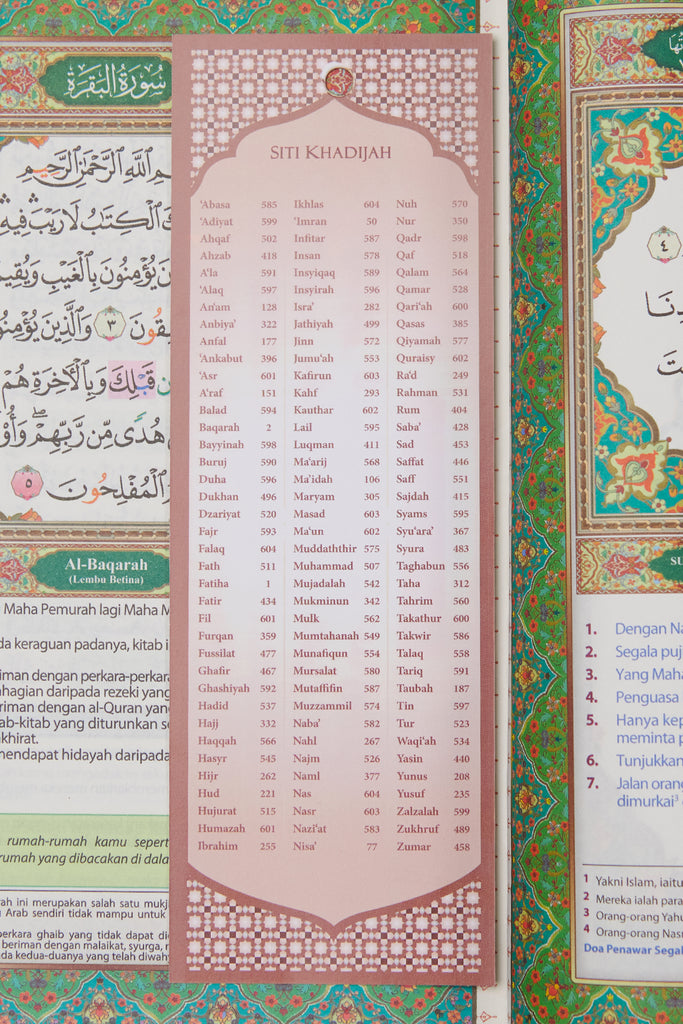 سُورَةُ الْبَقَرَةِ
اللَّهِ الرَّحْمَٰنِ الرَّحِيمِ
الْكِتَابُ لَا رَيْبَ فِيهِ
يُؤْمِنُونَ بِالْغَيْبِ
٣ وَالَّذِينَ
قَبْلِكَ وَبِالْآخِرَةِ هُمْ
هُدًى مِّن رَّبِّهِمْ
الْمُفْلِحُونَ ٥
Al-Baqarah
(Lembu Betina)
Maha Pemurah lagi Maha
keraguan padanya, kitab
dengan perkara-perkara
daripada rezeki yang
dengan al-Quran yang
yang diturunkan
mendapat hidayah daripada
rumah-rumah kamu
yang dibacakan di
ini merupakan salah satu
Arab sendiri tidak mampu untuk
ghaib yang tidak dapat
beriman dengan malaikat, syurga,
kedua-duanya yang telah
SITI KHADIJAH
'Abasa 585
'Adiyat 599
Ahqaf 502
Ahzab 418
A'la 591
'Alaq 597
An'am 128
Anbiya' 322
Anfal 177
'Ankabut 396
'Asr 601
A'raf 151
Balad 594
Baqarah 2
Bayyinah 598
Buruj 590
Duha 596
Dukhan 496
Dzariyat 520
Fajr 593
Falaq 604
Fath 511
Fatiha 1
Fatir 434
Fil 601
Furqan 359
Fussilat 477
Ghafir 467
Ghashiyah 592
Hadid 537
Hajj 332
Haqqah 566
Hasyr 545
Hijr 262
Hud 221
Hujurat 515
Humazah 601
Ibrahim 255
Ikhlas 604
'Imran 50
Infitar 587
Insan 578
Insyiqaq 589
Insyirah 596
Isra' 282
Jathiyah 499
Jinn 572
Jumu'ah 553
Kafirun 603
Kahf 293
Kauthar 602
Lail 595
Luqman 411
Ma'arij 568
Ma'idah 106
Maryam 305
Masad 603
Ma'un 602
Muddaththir 575
Muhammad 507
Mujadalah 542
Mukminun 342
Mulk 562
Mumtahanah 549
Munafiqun 554
Mursalat 580
Mutaffifin 587
Muzzammil 574
Naba' 582
Nahl 267
Najm 526
Naml 377
Nas 604
Nasr 603
Nazi'at 583
Nisa' 77
Nuh 570
Nur 350
Qadr 598
Qaf 518
Qalam 564
Qamar 528
Qari'ah 600
Qasas 385
Qiyamah 577
Quraisy 602
Ra'd 249
Rahman 531
Rum 404
Saba' 428
Sad 453
Saffat 446
Saff 551
Sajdah 415
Syams 595
Syu'ara' 367
Syura 483
Taghabun 556
Taha 312
Tahrim 560
Takathur 600
Takwir 586
Talaq 558
Tariq 591
Taubah 187
Tin 597
Tur 523
Waqi'ah 534
Yasin 440
Yunus 208
Yusuf 235
Zalzalah 599
Zukhruf 489
Zumar 458
٤
1. Dengan
2. Segala
3. Yang
4. Penguasa
5. Hanya
meminta
6. Tunjukkan
7. Jalan
dimurkai³
1 Yakni Islam,
2 Mereka ialah
3 Orang-orang
4 Orang-orang
Doa Penawar